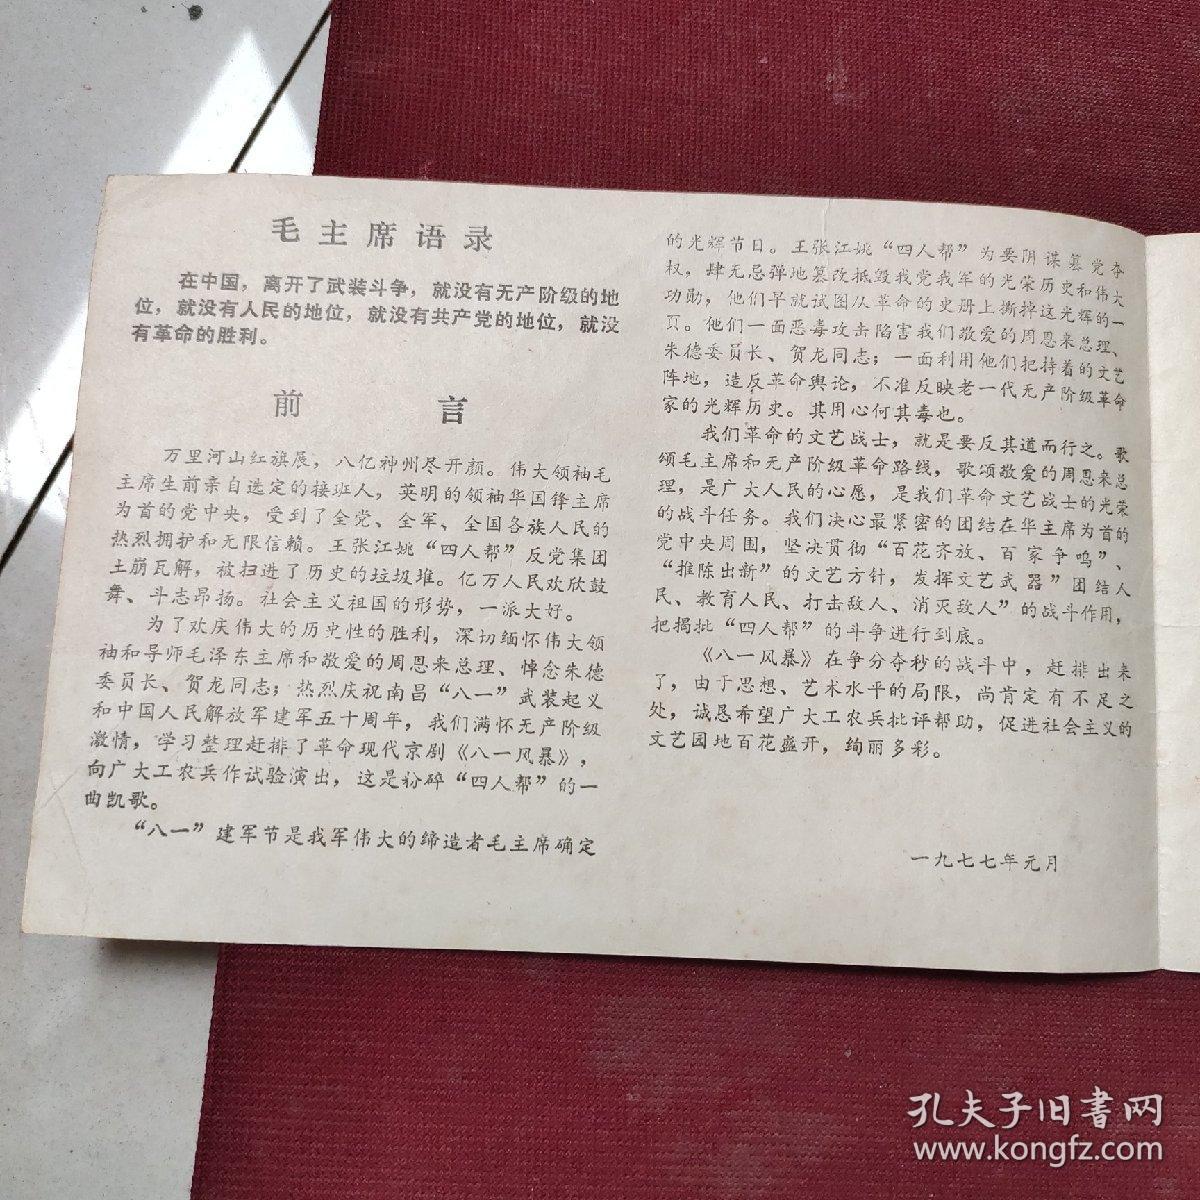 毛主席语录
在中国，离开了武装斗争，就没有无产阶级的地
位，就没有人民的地位，就没有共产党的地位，就没
有革命的胜利。
前言
万里河山红旗展，八亿神州尽开颜。伟大领袖毛
主席生前亲自选定的接班人，英明的领袖华国锋主席
为首的党中央，受到了全党、全军、全国各族人民的
热烈拥护和无限信赖。王张江姚“四人帮”反党集团
土崩瓦解，被扫进了历史的垃圾堆。亿万人民欢欣鼓
舞、斗志昂扬。社会主义祖国的形势，一派大好。
为了欢庆伟大的历史性的胜利，深切缅怀伟大领
袖和导师毛泽东主席和敬爱的周恩来总理、悼念朱德
委员长、贺龙同志；热烈庆祝南昌“八一”武装起义
和中国人民解放军建军五十周年，我们满怀无产阶级
激情，学习整理赶排了革命现代京剧《八一风暴》，
向广大工农兵作试验演出，这是粉碎“四人帮”的一
曲凯歌。
“八一”建军节是我军伟大的缔造者毛主席确定
的光辉节日。王张江姚“四人帮”为要阴谋篡党夺
权，肆无忌弹地篡改抵毁我党我军的光荣历史和伟大
功勋，他们早就试图从革命的史册上撕掉这光辉的一
页。他们一面恶毒攻击陷害我们敬爱的周恩来总理、
朱德委员长、贺龙同志；一面利用他们把持着的文艺
阵地，造反革命舆论，不准反映老一代无产阶级革命
家的光辉历史。其用心何其毒也。
我们革命的文艺战士，就是要反其道而行之。歌
颂毛主席和无产阶级革命路线，歌颂敬爱的周恩来总
理，是广大人民的心愿，是我们革命文艺战士的光荣
的战斗任务。我们决心最紧密的团结在华主席为首的
党中央周围，坚决贯彻“百花齐放、百家争鸣”、
“推陈出新”的文艺方针，发挥文艺武器”团结人
民、教育人民、打击敌人、消灭敌人”的战斗作用，
把揭批“四人帮”的斗争进行到底。
《八一风暴》在争分夺秒的战斗中，赶排出来
了，由于思想、艺术水平的局限，尚肯定有不足之
处，诚恳希望广大工农兵批评帮助，促进社会主义的
文艺园地百花盛开，绚丽多彩。
一九七七年元月
孔夫子旧书网
www.kongfz.com